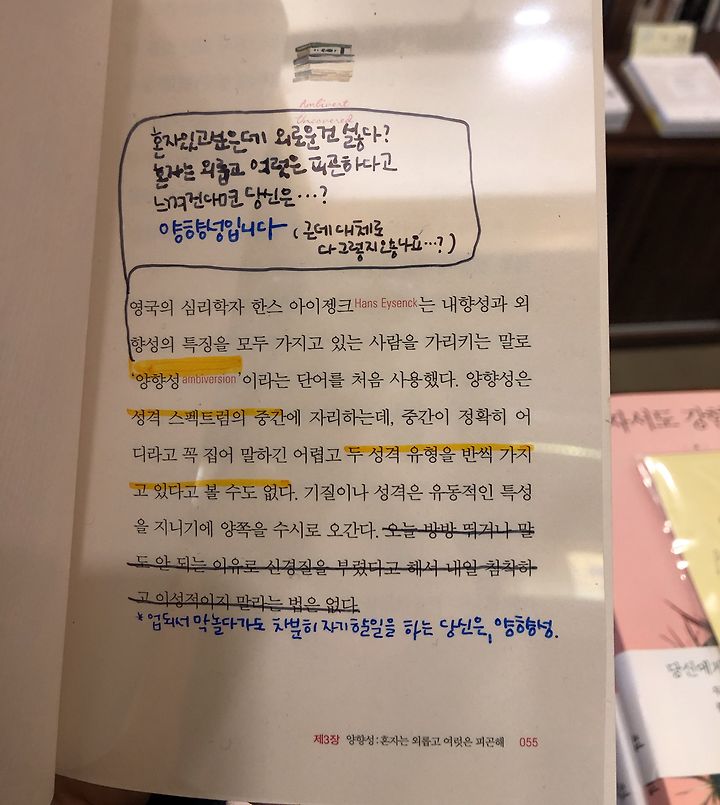 Ambivert
Uncovered
혼자있고싶은데 외로운건 싫다?
혼자는 외롭고 여럿은 피곤하다고
느껴진다면 당신은…?
양향성입니다 (근데 대체로
다그렇지않나요…?)
영국의 심리학자 한스 아이젱크Hans Eysenck는 내향성과 외
향성의 특징을 모두 가지고 있는 사람을 가리키는 말로
‘양향성ambiversion’이라는 단어를 처음 사용했다. 양향성은
성격 스펙트럼의 중간에 자리하는데, 중간이 정확히 어
디라고 꼭 집어 말하긴 어렵고 두 성격 유형을 반씩 가지
고 있다고 볼 수도 없다. 기질이나 성격은 유동적인 특성
을 지니기에 양쪽을 수시로 오간다. 오늘 방방 뛰거나 말
도 안 되는 이유로 신경질을 부렸다고 해서 내일 침착하
고 이성적이지 말라는 법은 없다.
*업되서 막놀다가도 차분히 자기할일을 하는 당신은, 양향성.
제3장 양향성: 혼자는 외롭고 여럿은 피곤해 055
당신에게